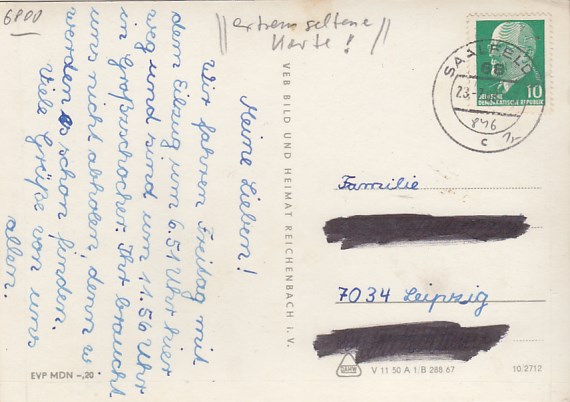 6800
//extrem seltene
Karte! //
Meine Lieben!
Wir fahren Freitag mit
dem Eilzug um 6.51 Uhr hier
weg und sind um 11.56 Uhr
in Großzschocher. Ihr braucht
uns nicht abholen, denn w.
werden es schon finden.
Viele Grüße von uns
allen.
EVP MDN -,20
VEB BILD UND HEIMAT REICHENBACH I. V.
SAALFELD
68
23.-7.
846
c
10
DEUTSCHE
DEMOKRATISCHE REPUBLIK
Familie
7034 Leipzig
V 11 50 A 1/B 288 67
10/2712